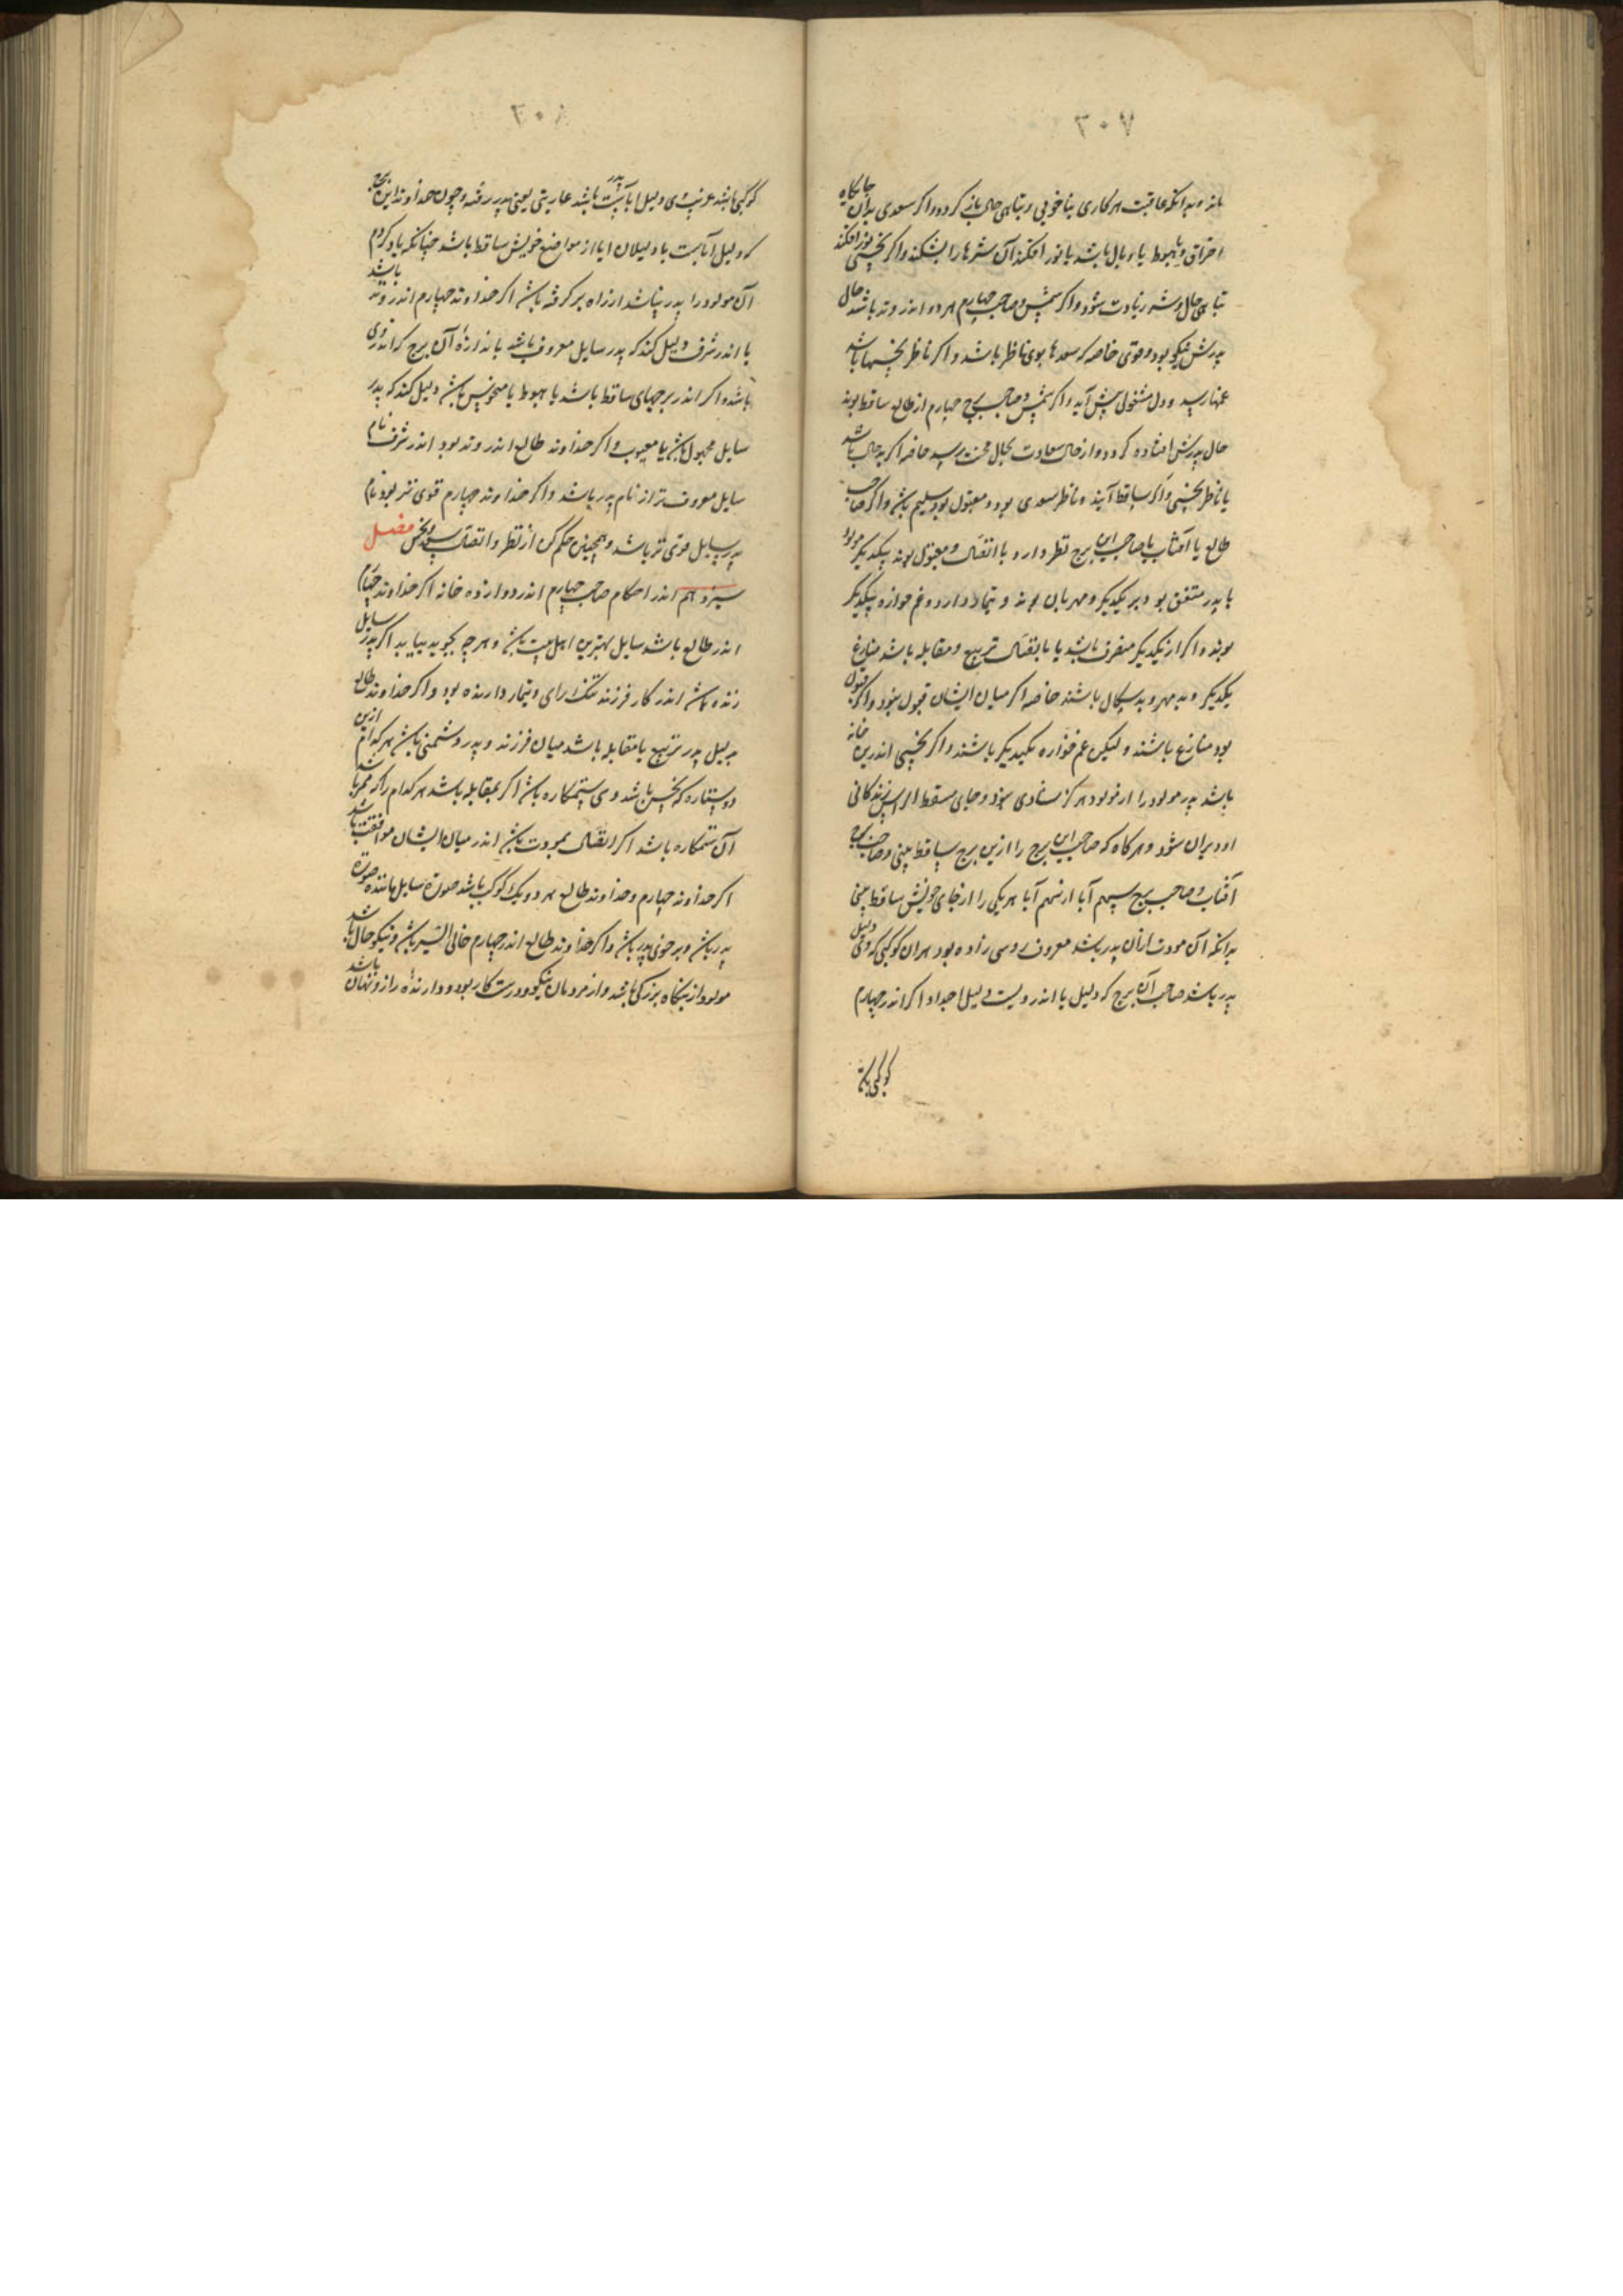 ۳۰۷
ماند و بدانکه عاقبت هر کاری بناخوبی و تباهی حال باز کردد واکر سعدی بدان جایکاه
احتراق و یا هبوط یا وبال باشد یا نور افکند آن شرها را بشکند واکر نحسی نور افکند
تباهی حال و شر زیادت شود واکر شمس و صاحب چهارم هر دو اندر وتد باشد حال
پدرش نیکو بود و قوی خاصه که سعدها بوی ناظر باشد واکر ناظر نحسها باشد
غمها رسد و دل مشغولی پیش آید واکر شمس و صاحب برج چهارم از طالع ساقط بوند
حال پدرش افتاده کردد و از حال سعادت بحال محنت رسد خاصه اکر بد حال باشد
یا ناظر نحسی واکر ساقط آیند و ناظر سعدی بود و مقبول بود سلیم باشد واکر صاحب
طالع یا آفتاب یا صاحب این برج نظر دارد یا اتصال و مقبول بوند بیکدیکر مولود
با پدر متفق بود بر یکدیکر و مهربان بوند و تیمار دارد و غم خواره یکدیکر
بوند واکر از یکدیکر منصرف باشد یا باتصال تربیع و مقابله باشد منازع
یکدیکر و بد مهر و بد سکال باشند خاصه اکر میان ایشان قبول نبود واکر قبول
بود منازع باشند ولیکن غم خواره یکدیکر باشند واکر نحسی اندرین خانه
باشد پدر مولود را از مولود هرکز شادی نبود و جای مسقط الراس زندکانی
او ویران شود و هرکاه که صاحب این برج را ازین برج ساقط بینی و صاحب برج
آفتاب و صاحب برج سهم آبا از سهم آبا هر یکی را از جای خویش ساقط بینی
بدانکه آن مولود ازان پدر باشد معروف روسی زاده بود هران کوکبی که وی دلیل
پدر باشد صاحب آن برج که دلیل با اندرویست دلیل اجداد اکر اندر چهارم
کوکبی باشد
۳۰۸
کوکبی باشد غریب وی دلیل اباست پدر باشد عاریتی یعنی پدر رفته و چون خداوند این برج
که دلیل آباست با دلیلان ابا از مواضع خویش ساقط باشد چنانکه یاد کردم
آن مولود را پدر نباشد از راه بر کرفته باشد اکر خداوند چهارم اندر وتد باشد
یا اندر شرف دلیل کند که پدر سایل معروف باشد باندازهٔ آن برج که اندروی
باشد واکر اندر برجهای ساقط باشد یا هبوط یا منحوس باشد دلیل کند که پدر
سایل مجهول باشد یا معیوب واکر خداوند طالع اندر وتد بود اندر شرف نام
سایل معروف تر از نام پدر باشد واکر خداوند چهارم قوی تر بود نام
پدر سایل قوی تر باشد و همچنین حکم کن از نظر و اتصال سعد و نحس فصل
سیزدهم اندر احکام صاحب چهارم اندر دوازده خانه اکر خداوند چهارم
اندر طالع باشد سایل بهترین اهل بیت باشد و هرچه بجوید بیابد اکر پدر سایل
زنده باشد اندر کار فرزند نیک رای و تیمار دارنده بود واکر خداوند طالع
بدلیل پدر تربیع یا مقابله باشد میان فرزند و پدر دشمنی باشد هر کدام ازین
دو ستاره که نحس باشد وی ستمکاره باشد اکر بمقابله باشد هر کدام را که ممر باشد
آن ستمکاره باشد اکر اتصال بمودت باشد اندر میان ایشان موافقت باشد
اکر خداوند چهارم و خداوند طالع هر دو یک کوکب باشد صورة سایل مانندهٔ صورة
پدر باشد و بر خوی پدر باشد واکر خداوند طالع اندر چهارم خالی السیر باشد و نیکو حال باشد
مولود از بنکاه بزرک باشد و از مردمان نیکو و درست کار بود و دارندهٔ راز و نهان باشد